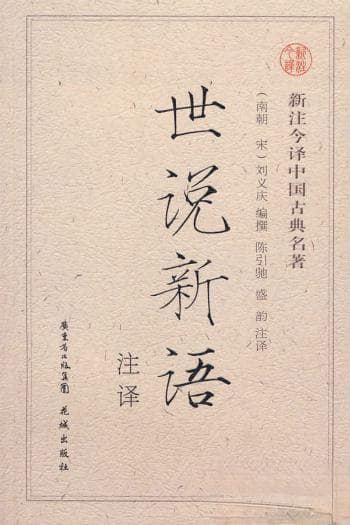 新注今译
新注今译中国古典名著
(南朝 宋)刘义庆 编撰 陈引驰 盛韵 注译
世说新语
注译
广东省出版集团
花城出版社